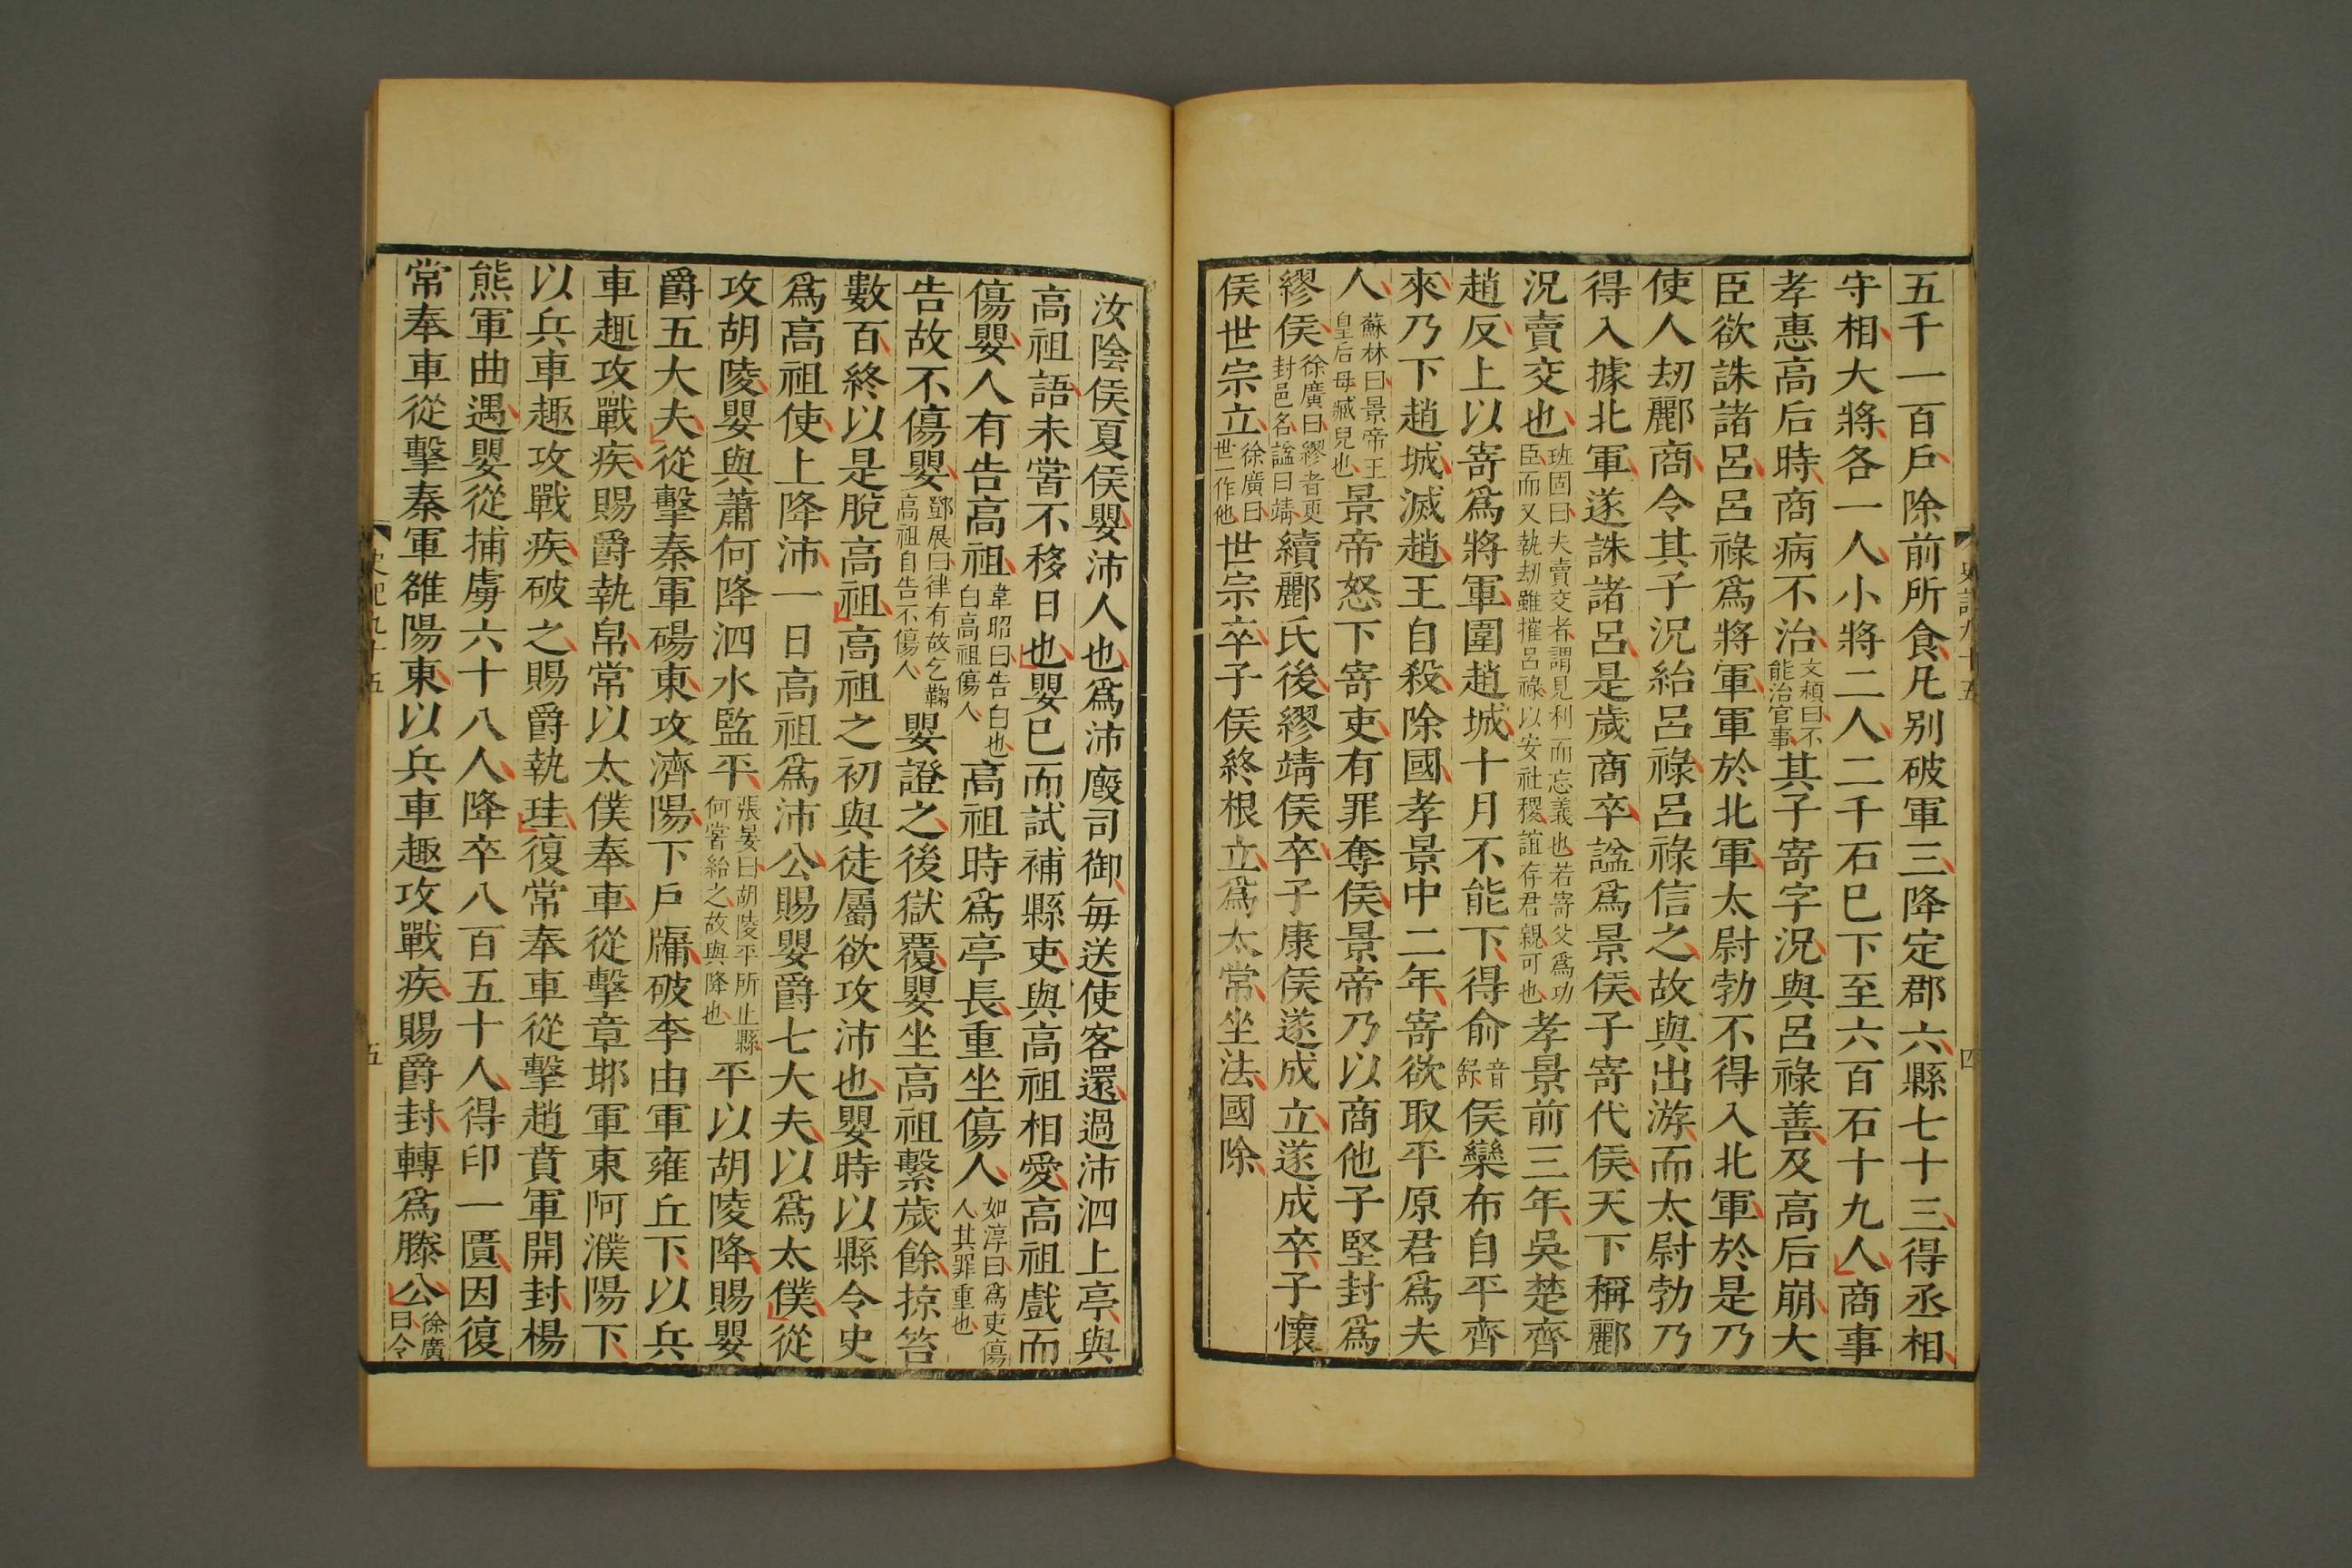 五千一百戶除前所食凡别破軍三降定郡六縣七十三得丞相
守相大將各一人小將二人二千石巳下至六百石十九人商事
孝惠高后時商病不治文穎曰不能治官事其子寄字況與呂祿善及高后崩大
臣欲誅諸呂呂祿爲將軍軍於北軍太尉勃不得入北軍於是乃
使人刼酈商令其子況紿呂祿呂祿信之故與出游而太尉勃乃
得入據北軍遂誅諸呂是歲商卒諡爲景侯子寄代侯天下稱酈
況賣交也班固曰夫賣交者謂見利而忘義也若寄父爲功臣而又執刼雖摧呂祿以安社稷誼存君親可也孝景前三年吳楚齊
趙反上以寄爲將軍圍趙城十月不能下得俞音舒侯欒布自平齊
來乃下趙城滅趙王自殺除國孝景中二年寄欲取平原君爲夫
人蘇林曰景帝王皇后母臧兒也景帝怒下寄吏有罪奪侯景帝乃以商他子堅封爲
繆侯徐廣曰繆者更封邑名諡曰靖續酈氏後繆靖侯卒子康侯遂成立遂成卒子懷
侯世宗立徐廣曰世一作他世宗卒子侯終根立爲太常坐法國除
史記九十五
四
汝陰侯夏侯嬰沛人也爲沛廄司御每送使客還過沛泗上亭與
高祖語未嘗不移日也嬰巳而試補縣吏與高祖相愛高祖戲而
傷嬰人有告高祖韋昭曰告白也白高祖傷人高祖時爲亭長重坐傷人如淳曰爲吏傷人其罪重也
告故不傷嬰鄧展曰律有故乞鞫高祖自告不傷人嬰證之後獄覆嬰坐高祖繫歲餘掠笞
數百終以是脫高祖高祖之初與徒屬欲攻沛也嬰時以縣令史
爲高祖使上降沛一日高祖爲沛公賜嬰爵七大夫以爲太僕從
攻胡陵嬰與蕭何降泗水監平張晏曰胡陵平所止縣何嘗給之故與降也平以胡陵降賜嬰
爵五大夫從擊秦軍碭東攻濟陽下戶牖破李由軍雍丘下以兵
車趣攻戰疾賜爵執帛常以太僕奉車從擊章邯軍東阿濮陽下
以兵車趣攻戰疾破之賜爵執珪復常奉車從擊趙賁軍開封楊
熊軍曲遇嬰從捕虜六十八人降卒八百五十人得印一匱因復
常奉車從擊秦軍雒陽東以兵車趣攻戰疾賜爵封轉爲滕公徐廣曰令
史記九十五
五